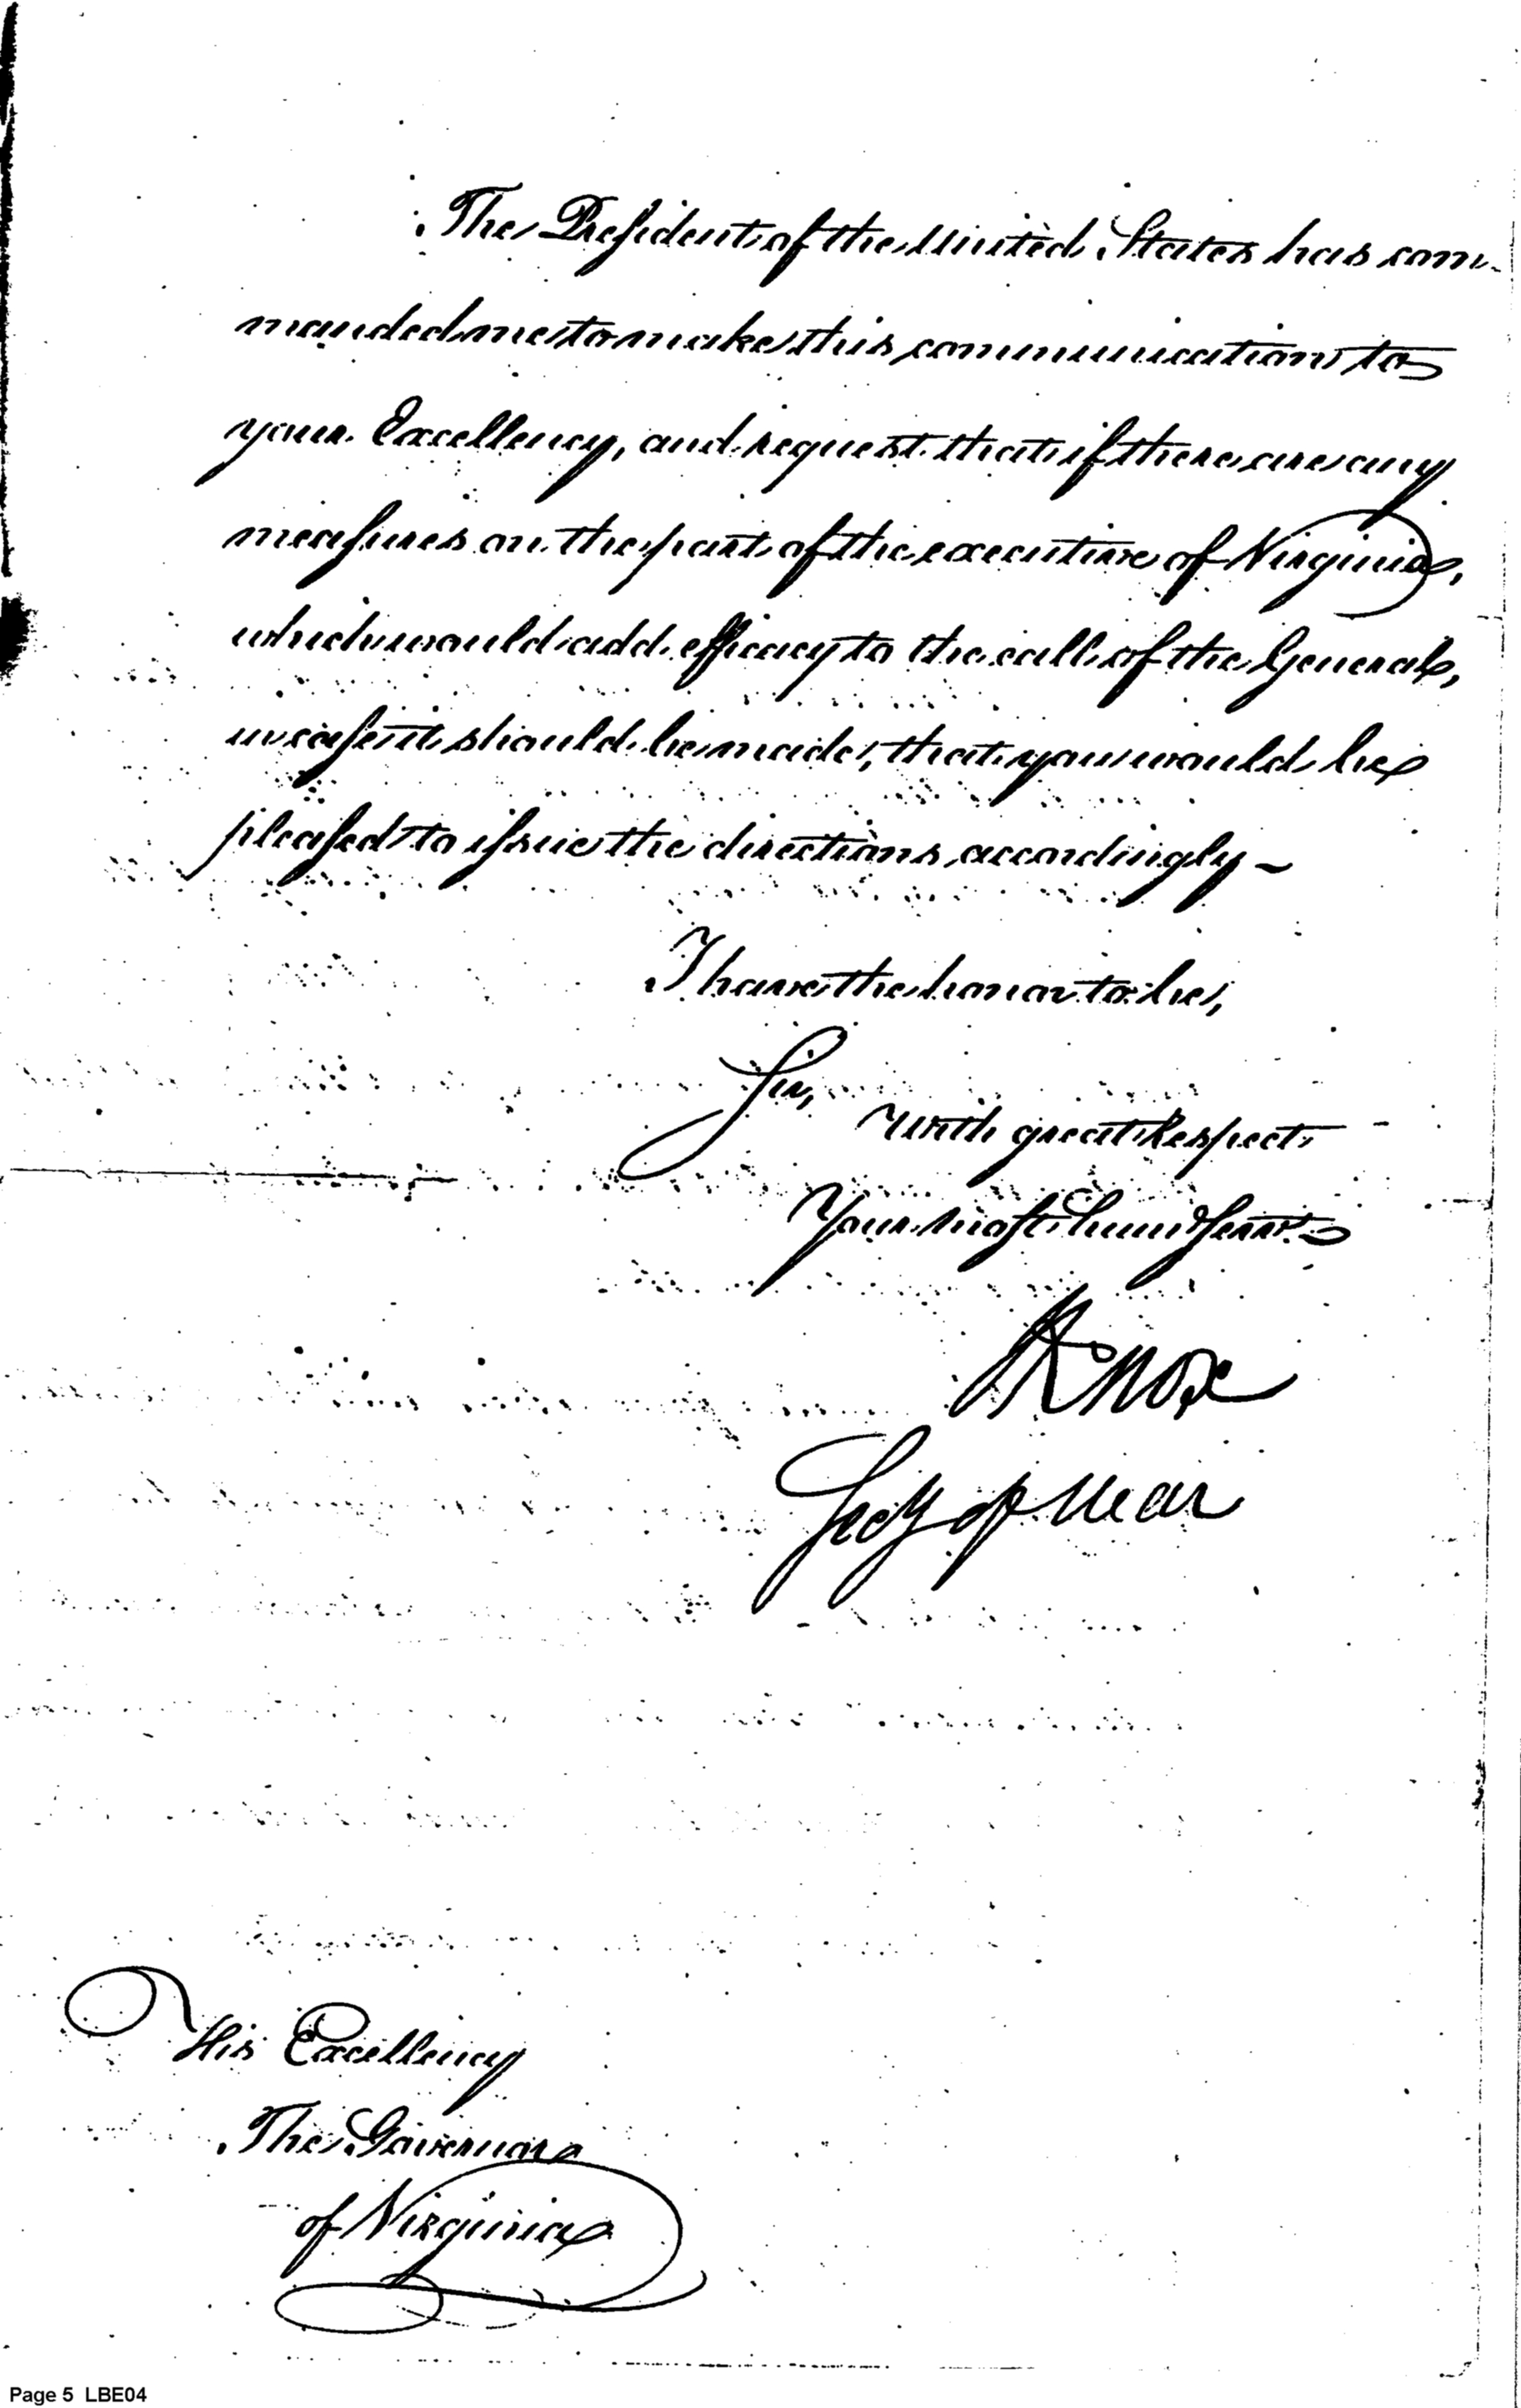 The President of the United States has com-
manded me to make this communication to
your Excellency, and request that if there are any
measures on the part of the executive of Virginia,
which would add efficacy to the call of the General,
in case it should be made, that you would be
pleased to issue the directions accordingly –
I have the honor to be,
Sir,
with great Respect
Your most hum Servt.
HKnox
Secy of War
His Excellency
The Governor
of Virginia
Page 5 LBE04